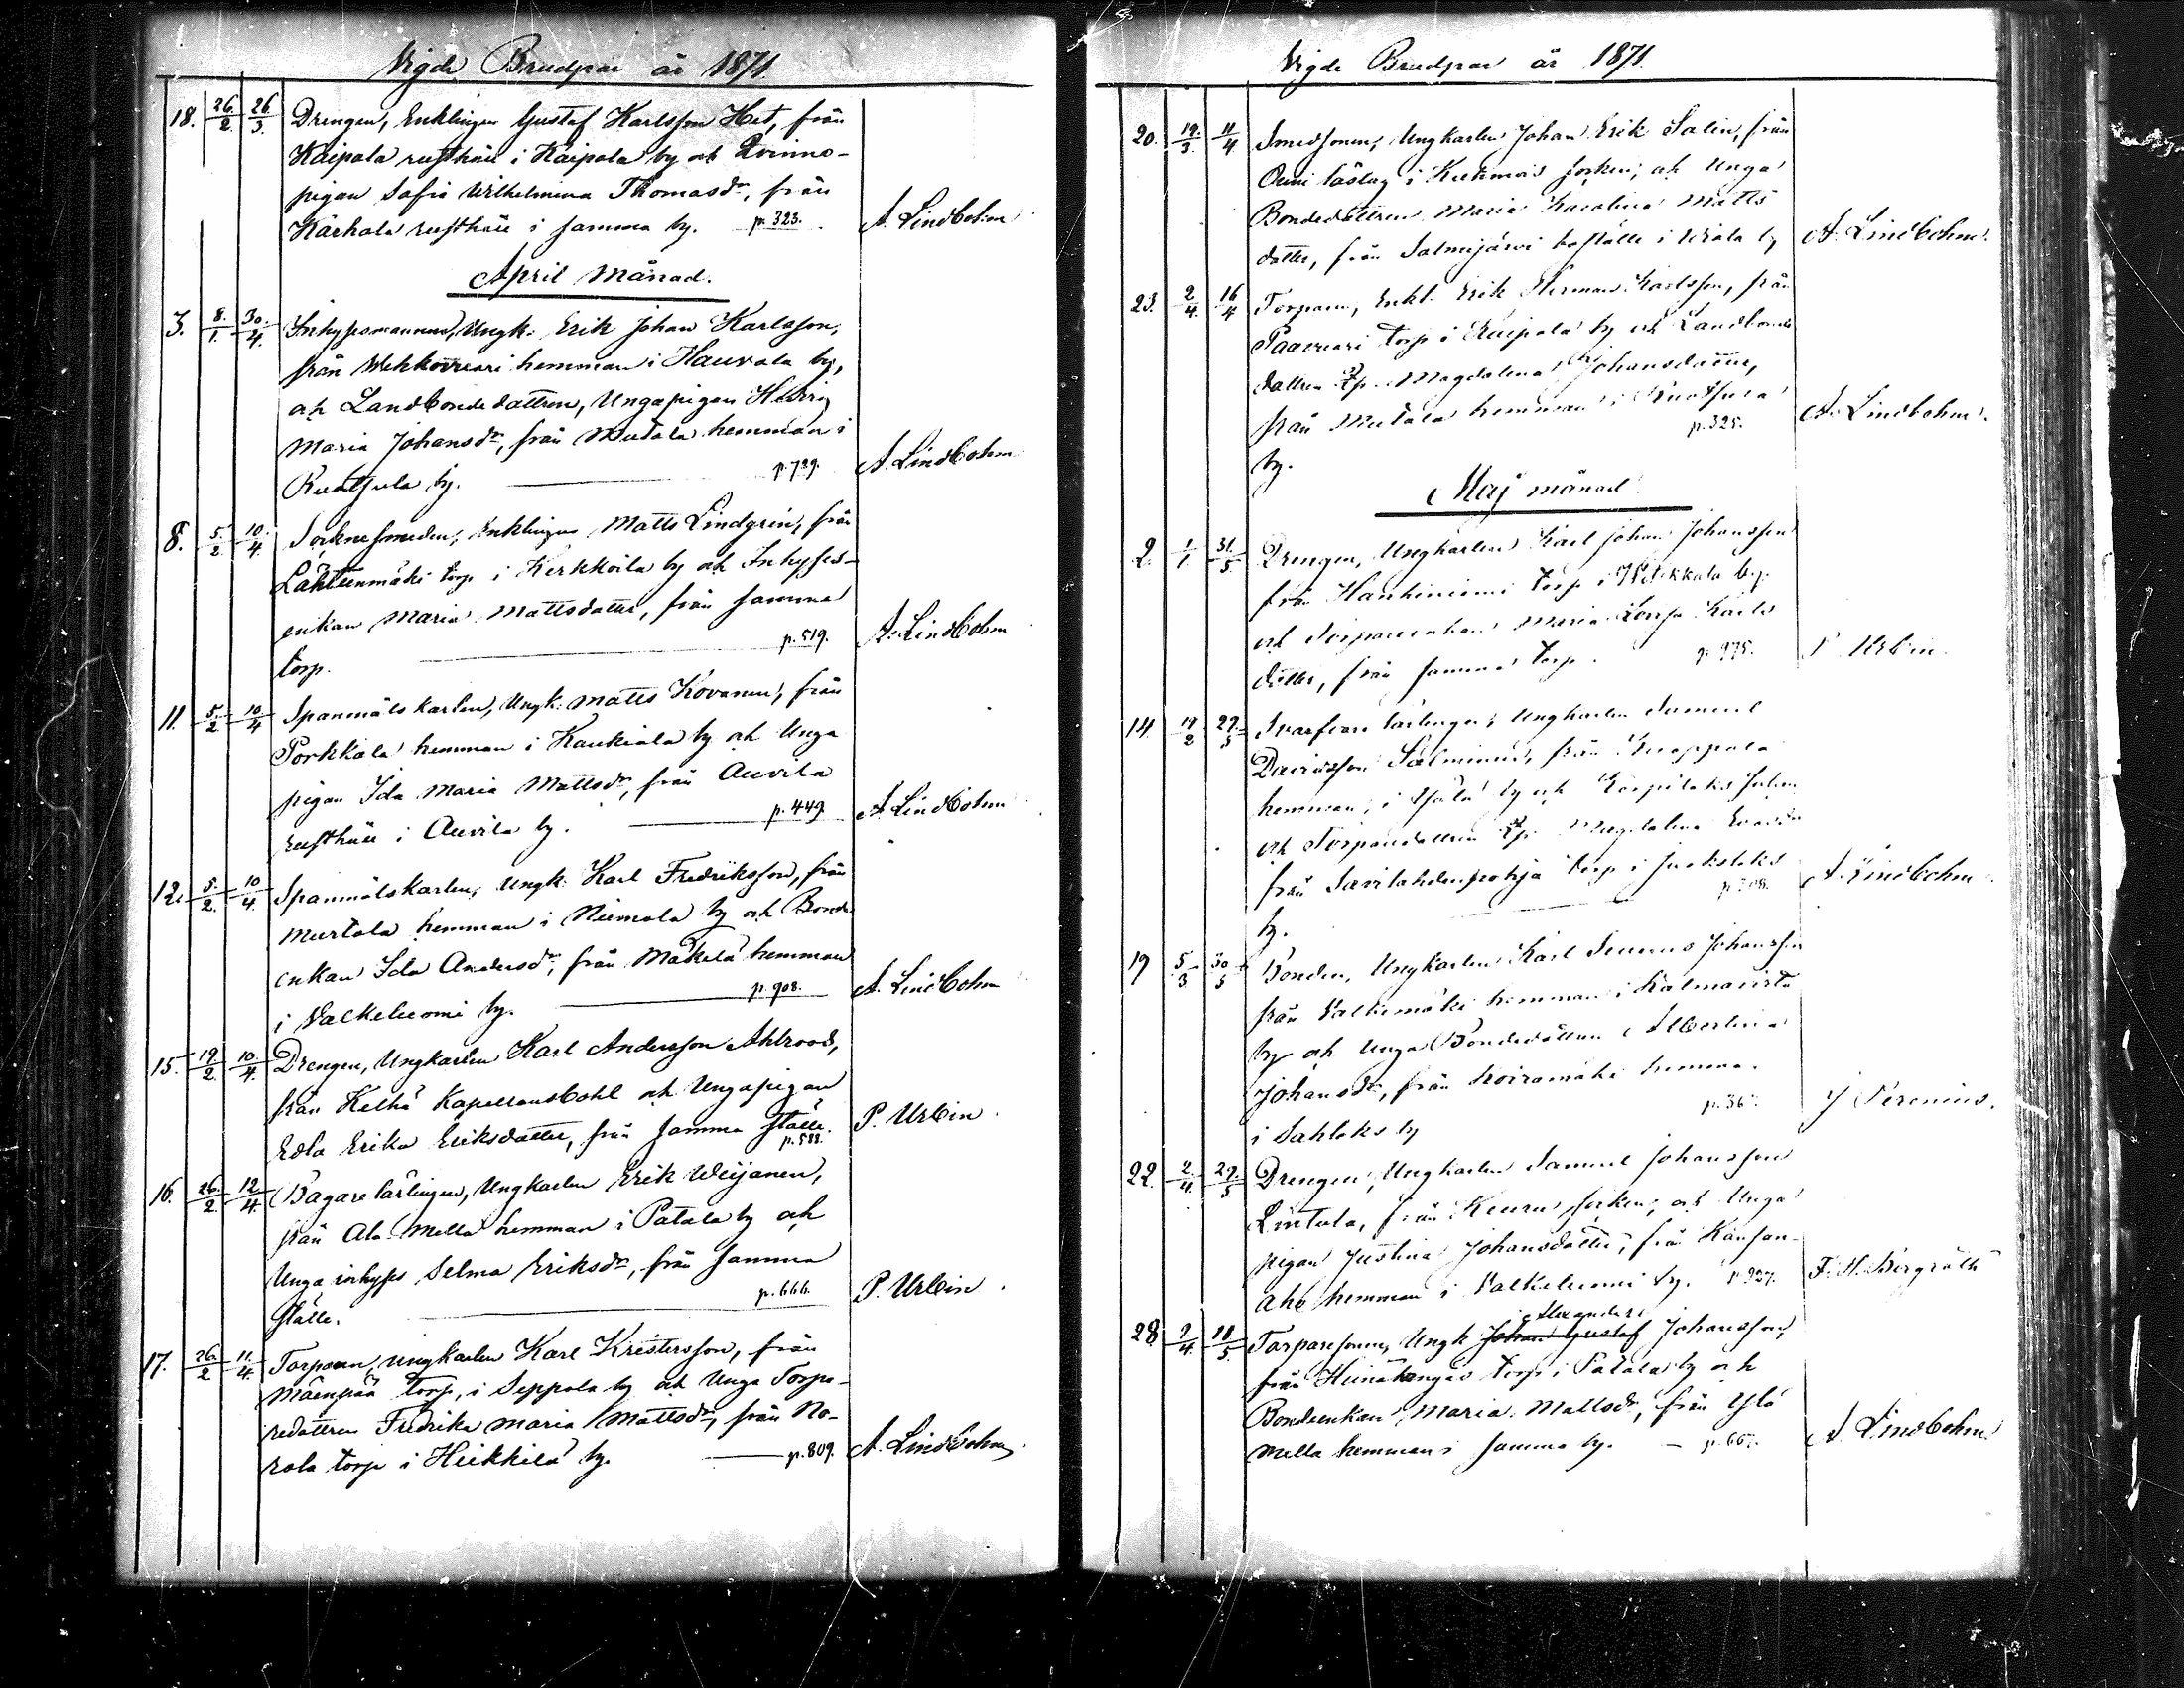 Vigde Brudpar år 1871.
18. 26/2. 26/3. Drengen, Enklingen Gustaf Karlsson Het, från
Kaipala rusthåll i Kaipala by och Qvinns-
pigan Sofia Wilhelmina Thomasdr, från
Karhala rusthåll i samma by. p. 323. A. Lindbohm
April Månad.
3. 8./1. 30./4. Inhysesmannen, Ungk. Erik Johan Karlsson,
från hemman i Hauvala by,
och Landbondedattren, Ungapigan Hedvig
Maria Johansdr, från Mutala hemman i
Ruotsula by. p. 729. A. Lindbohm
8. 5./2. 10./4. Socknesmeden, Enklingen Matts Lindgrén, från
Lähteenmäki torp i Kerkkoila by och Inhyses-
enkan Maria Mattsdotter, från samma
torp. p. 519. A. Lindbohm
11. 5./2. 10./4 Spanmålskarlen, Ungk. Matts Kovanen, från
Porkkala hemman i Kaukiala by och Unga
pigan Ida Maria Mattsdr, från Auvila
rusthåll i Auvila by. p. 449. A. Lindbohm
12. 5./2. 10/4. Spanmålskarlen, Ungk. Karl Fredriksson, från
Murtola hemman i Niemola by och Bond-
enkan Ida Andersdr, från Mäkelä hemman
i Valkeluomi by. p. 908. A. Lindbohm
15. 19/2. 10./4. Drengen, Ungkarlen Karl Andersson Ahlroos,
från Kelhä Kapellansbohl och Ungapigan
Edla Erika Eriksdotter, från samma ställe. p. 588. P. Urbin
16. 26./2 12/4. Bagarelärlingen, Ungkarlen Erik Weijanen,
från Ala-Mella hemman i Patala by och
Unga inhyses Selma Eriksdr, från samma
ställe. p. 666. P. Urbin
17. 26./2 11./4. Torparen, Ungkarlen Karl Kristersson, från
Mäenpää torp, i Seppola by och Unga Torpa-
redattren Fredrika Maria Mattsdr, från No-
rola torp i Heikkilä by. p. 809. A. Lindbohm
Vigde Brudpar år 1871.
20. 19./3. 11/4 Smedsonen, Ungkarlen Johan Erik Salin, från
Orivi i Kuhmois socken, och Unga
Bondedattren Maria Karolina Matts
dotter, från Salmijärvi boställe i by A. Lindbohm
23. 2/4. 16/4 Torparen, Enkl. Erik Herman Karlsson, från
Paavuori torp i Kaipala by och Landbonde
dattren Magdalena Johansdatter,
från Mutala hemman i Ruotsula
by. p. 325. A. Lindbohm
Maj månad
2. 1/1. 31./5. Drengen, Ungkarlen Karl Johan Johansson
från Hanhiniemi torp i by
och Torpareenkan Maria Lovisa Karls
dotter, från samma torp. p. 975. P. Urbin
14 19/2 29./5 Svarfvare lärlingen, Ungkarlen Samuel
Davidsson Salminen, från Knappala
hemman, i by och
och Torparedattren Magdalena
från Savilahdenpohja torp i Juokslaks
by. A. Lindbohm
19 5/3 30/5 Bonden, Ungkarlen Karl Johansson
från Valkemäki hemman i Kalmavirta
by och Unga Bondedattren Albertina
Johansdr, från Koiramäki hemman
i Sahlaks by J. Perenius.
22. 2./4. 29./5 Drengen, Ungkarlen Samuel Johansson
Lintula, från Keuru socken, och Unga
pigan Justina Johansdatter, från Känsän-
aho hemman i Valkeluomi by. p. 927. F. H. Bergroth
Alexander
28 9/4. 18/5. Torparesonen, Ungk. Johan Gustaf Johansson,
från Heinäkangas torp i Patala by och
Bondeenkan Maria Mattsdr, från Ylä
Mella hemman i samma by. A. Lindbohm